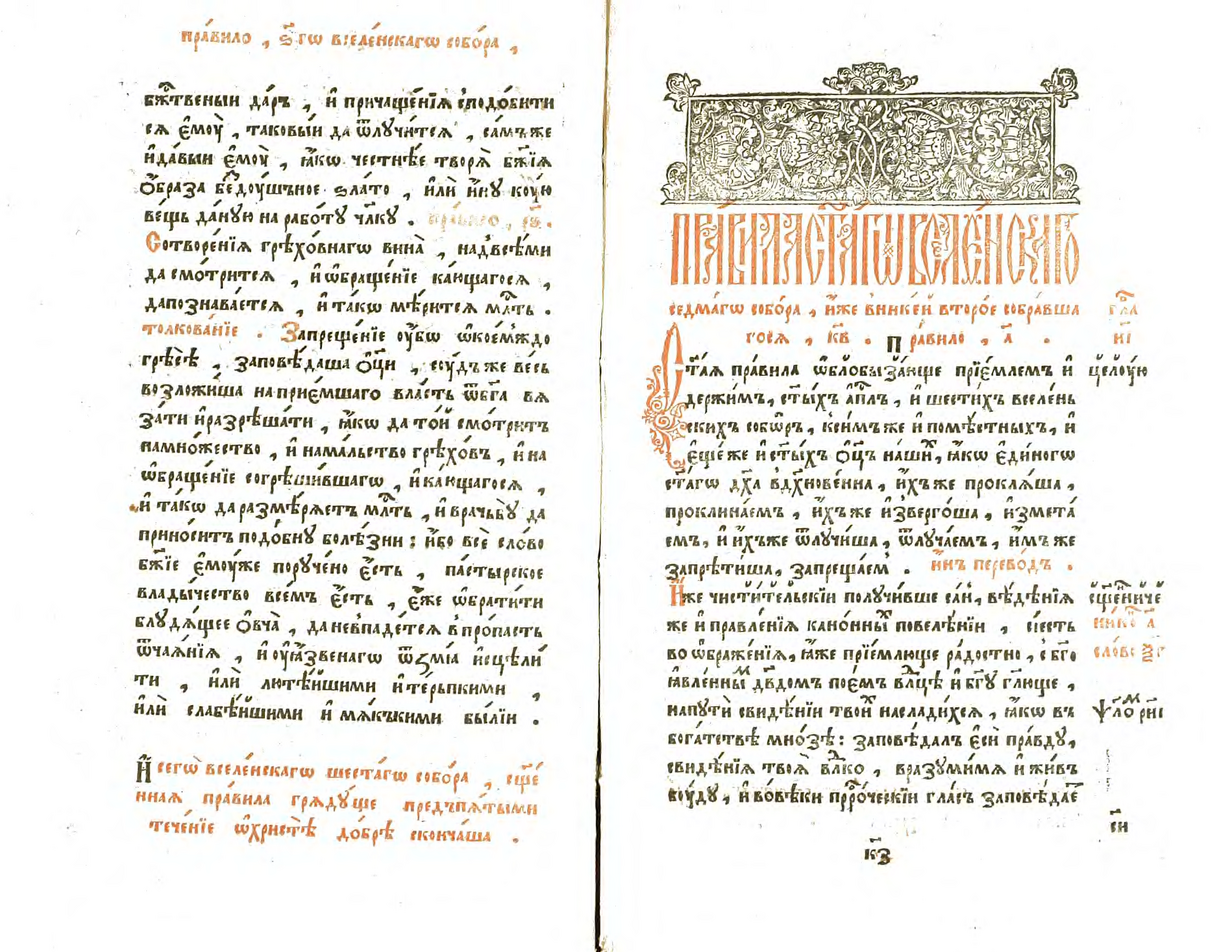 пра́вило , ѕ҃гѡ вселе́нскагѡ собо́ра ,
бж҃твеныи да́ръ , и҆ причаще́нїѧ сподо́бити
сѧ є҆моу̀ , таковы́и да ѿлучи́тсѧ , са́мъже
и҆да́выи є҆моу̀ , ꙗ҆́кѡ честнѣ́е творѧ̀ бж҃їѧ
ѻ҆́браза бездоушъное ѕла́то , и҆лѝ и҆́ну коую
ве́щь да́ную на рабо́ту чл҃ку . пра́вило , р҃в .
Сотворе́нїѧ грѣхо́внагѡ вина̀ , надвсѣ́ми
да смо́тритсѧ , и҆ѡ҆браще́нїе ка́ющагосѧ ,
дапознава́етсѧ , и҆та́кѡ мѣ́ритсѧ мл҃ть .
толкова́нїе . Запреще́нїе оу҆́бѡ ѡ҆кое́мждо
грѣсѣ̀ , заповѣ́даша ѻ҆ц҃и , соу́дъже весь
возложи́ша наприе́мшаго вла́сть ѿбг҃а вѧ
за́ти и҆разрѣша́ти , ꙗ҆́кѡ да то́и смо́тритъ
намно́жество , и҆ нама́льство грѣхо́въ , и҆ на
ѡ҆браще́нїе согрѣши́вшагѡ , и҆ка́ющагосѧ ,
и҆ та́кѡ да размѣрѧ́етъ мл҃ть , и҆ врачьбу̀ да
прино́ситъ подо́бну болѣ́зни : и҆́бо всѐ сло́во
бж҃їе є҆моу́же пору́чено є҆́сть , па́стырское
влады́чество всѣ́мъ є҆́сть , є҆́же ѡ҆брати́ти
блудѧ́щее ѻ҆вча̀ , да невпаде́тсѧ впро́пасть
ѿча́ѧнїѧ , и҆ оу҆ꙗ҆́звенагѡ ѿзмі́а и҆сцѣли́
ти , и҆лѝ лютѣ́ишими и҆те́рьпкими ,
и҆лѝ слабѣ́ишими и҆ мѧ́къкими бы́лїи .
И҆ сегѡ̀ вселе́нскагѡ шеста́гѡ собо́ра , сщ҃е́
ннаѧ пра́вила грѧду́ще предъпѧ́тыми
тече́нїе ѡ҆христѣ̀ до́брѣ сконча́ша .
ПРАВИЛА СТАГѠ ВСЕЛЕНСКАГѠ
седма́гѡ собо́ра , и҆́же вникеи второ́е собра́вша
госѧ , к҃в . пра́вило , а҃ .
гла̀
н҃і
Ст҃а́ѧ пра́вила ѡ҆блобыза́юще прїе́млемъ и҆
цѣлоу́ю
держи́мъ , ст҃ы́хъ а҆п҃лъ , и҆ шести́хъ вселе́нь
скихъ собѡ́ръ , кси́мъже и҆ помѣ́стныхъ , и҆
є҆ще́же и҆ ст҃ы́хъ ѻ҆ц҃ъ на́ши , ꙗ҆́кѡ є҆ди́ногѡ
ст҃а́гѡ дх҃а вдх҃нове́нна , и҆́хъже проклѧ́ша ,
проклина́емъ , и҆́хъже и҆зверго́ша , и҆змета́
емъ , и҆ и҆́хъже ѿлучи́ша , ѿлуча́емъ , и҆́мъже
запрѣти́ша , запреща́ем . и҆́нъ перево́дъ .
И҆́же чисти́тельскїи получи́вше са́н , вѣ́дѣнїѧ
сщ҃е́нниче
же и҆ правле́нїѧ кано́нны повелѣ́нїи , сі́есть
во ѡ҆браже́нїѧ , ꙗ҆́же прїе́млюще ра́достно , с бг҃о
ꙗ҆вле́нны дв҃домъ пое́мъ вл҃цѣ и҆ бг҃у гл҃юще ,
напутѝ свидѣ́нїи твои́ наслади́хсѧ , ꙗ҆́кѡ въ
бога́тствѣ мно́зѣ : заповѣ́далъ є҆сѝ пра́вду ,
свидѣ́нїѧ твоѧ̀ вл҃ко , вразуми́мѧ и҆ жи́въ
боу́ду , и҆ во́вѣки пр҃рческїи гла́съ заповѣ́дае
си
к҃з